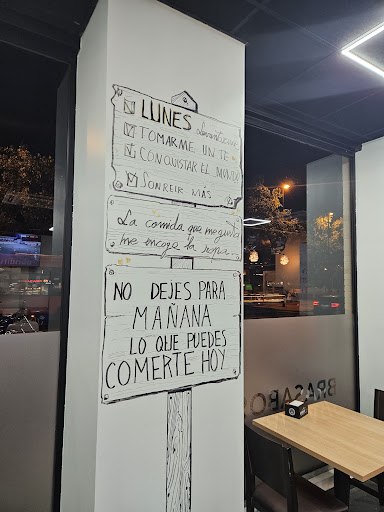 LUNES Levantarme
TOMARME UN TE
CONQUISTAR EL MUNDO
SONREIR MÁS
La comida que me gusta
me encoge la ropa
NO DEJES PARA
MAÑANA
LO QUE PUEDES
COMERTE HOY